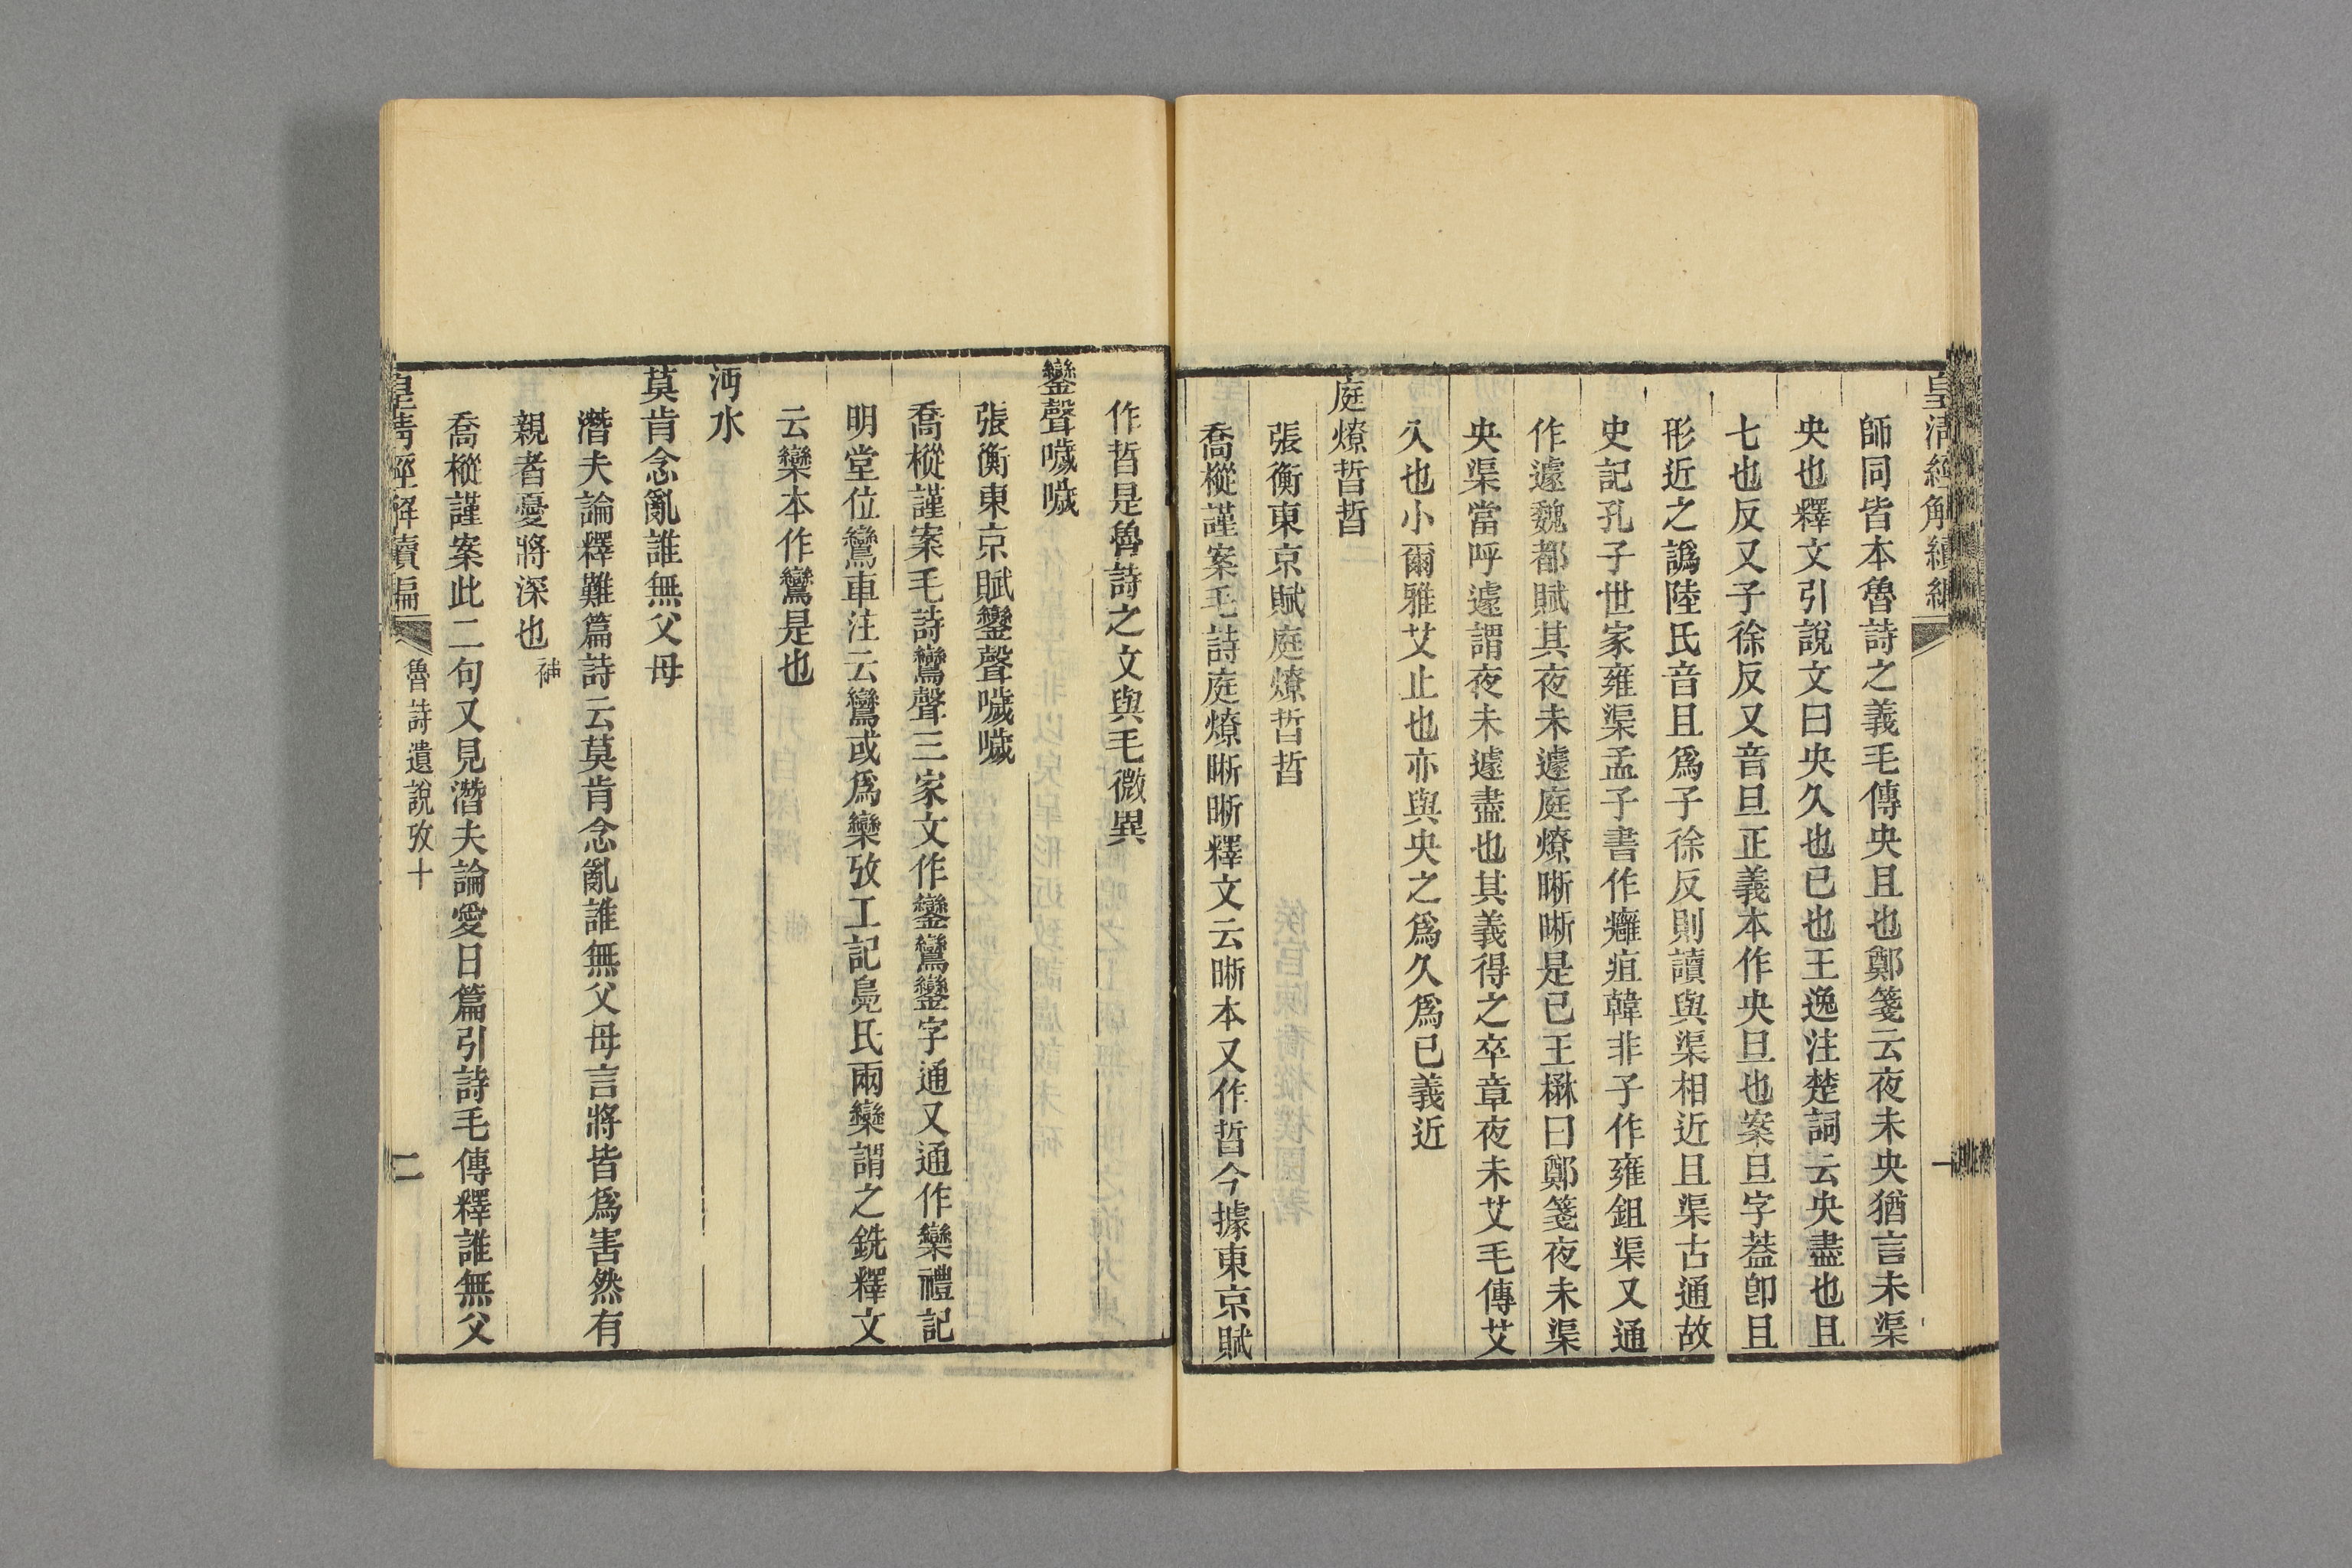 皇清經解續編
一
師同皆本魯詩之義毛傳央且也鄭箋云夜未央猶言未渠
央也釋文引說文曰央久也已也王逸注楚詞云央盡也且
七也反又子徐反又音旦正義本作央旦也案旦字葢卽且
形近之譌陸氏音且爲子徐反則讀與渠相近且渠古通故
史記孔子世家雍渠孟子書作癰疽韓非子作雍鉏渠又通
作遽魏都賦其夜未遽庭燎晣晣是已王楙曰鄭箋夜未渠
央渠當呼遽謂夜未遽盡也其義得之卒章夜未艾毛傳艾
久也小爾雅艾止也亦與央之爲久爲已義近
庭燎晢晢
張衡東京賦庭燎晢晢
喬樅謹案毛詩庭燎晣晣釋文云晣本又作晢今據東京賦
作晢是魯詩之文與毛微異
鑾聲噦噦
張衡東京賦鑾聲噦噦
喬樅謹案毛詩鸞聲三家文作鑾鸞鑾字通又通作欒禮記
明堂位鸞車注云鸞或爲欒攷工記鳧氏兩欒謂之銑釋文
云欒本作鸞是也
沔水
莫肯念亂誰無父母
潛夫論釋難篇詩云莫肯念亂誰無父母言將皆爲害然有
親者憂將深也補
喬樅謹案此二句又見潛夫論愛日篇引詩毛傳釋誰無父
皇清經解續編
魯詩遺說攷十
二